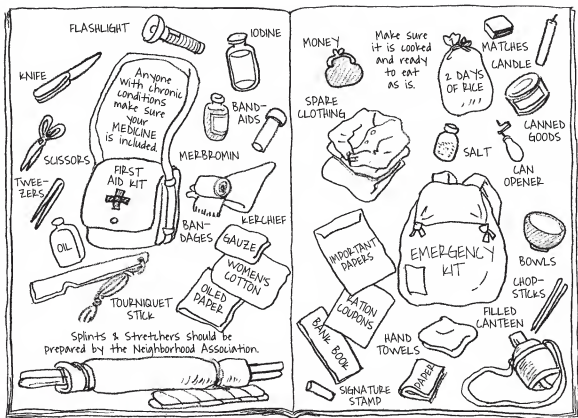 FLASHLIGHT
IODINE
KNIFE
Anyone
with chronic
conditions
make sure
your
MEDICINE
is included.
BAND-
AIDS
SCISSORS
MERBROMIN
FIRST
AID KIT
TWEE-
ZERS
KERCHIEF
BAN-
DAGES
OIL
GAUZE
WOMEN'S
COTTON
OILED
PAPER
TOURNIQUET
STICK
Splints & Stretchers should be
prepared by the Neighborhood Association.
MONEY
Make sure
it is cooked
and ready
to eat
as is.
2 DAYS
OF RICE
MATCHES
CANDLE
SPARE
CLOTHING
CANNED
GOODS
SALT
CAN
OPENER
IMPORTANT
PAPERS
EMERGENCY
KIT
BOWLS
CHOP-
STICKS
RATION
COUPONS
BANK BOOK
HAND
TOWELS
FILLED
CANTEEN
PAPER
SIGNATURE
STAMP